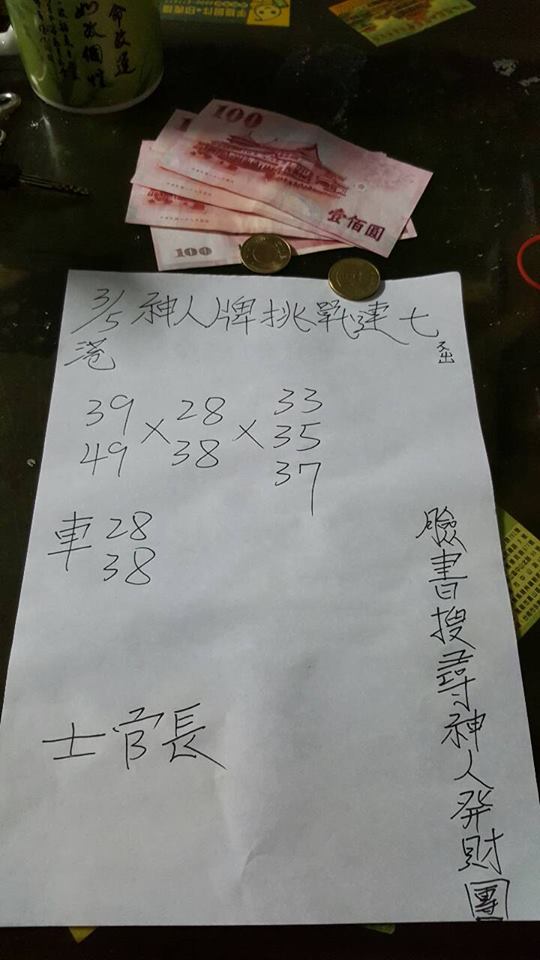 命改運
如故個性
100
壹佰圓
100
3/5 神人牌挑戰連七
港
39 × 28 × 33
49 38 35
37
車 28
38
士官長
臉書搜尋神人發財團